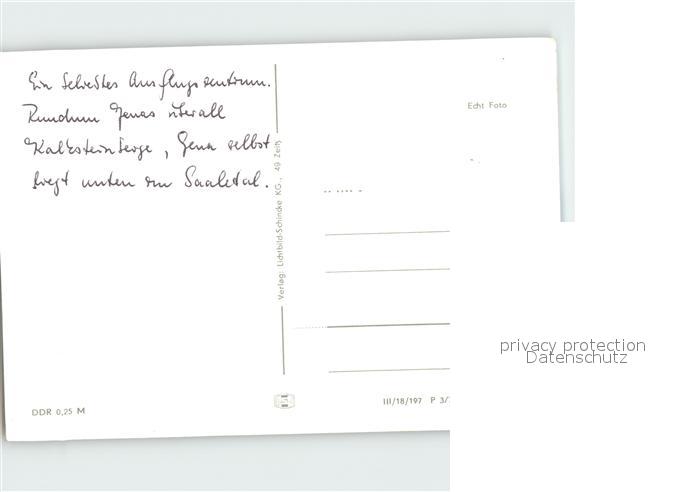 Ein beliebtes Ausflugszentrum.
Rundum Jenas überall
Kalksteinberge, Jena selbst
liegt unten im Saaletal.
Verlag: Lichtbild-Schincke KG., 49 Zeitz
Echt Foto
DDR 0,25 M
III/18/197 P 3/
privacy protection
Datenschutz